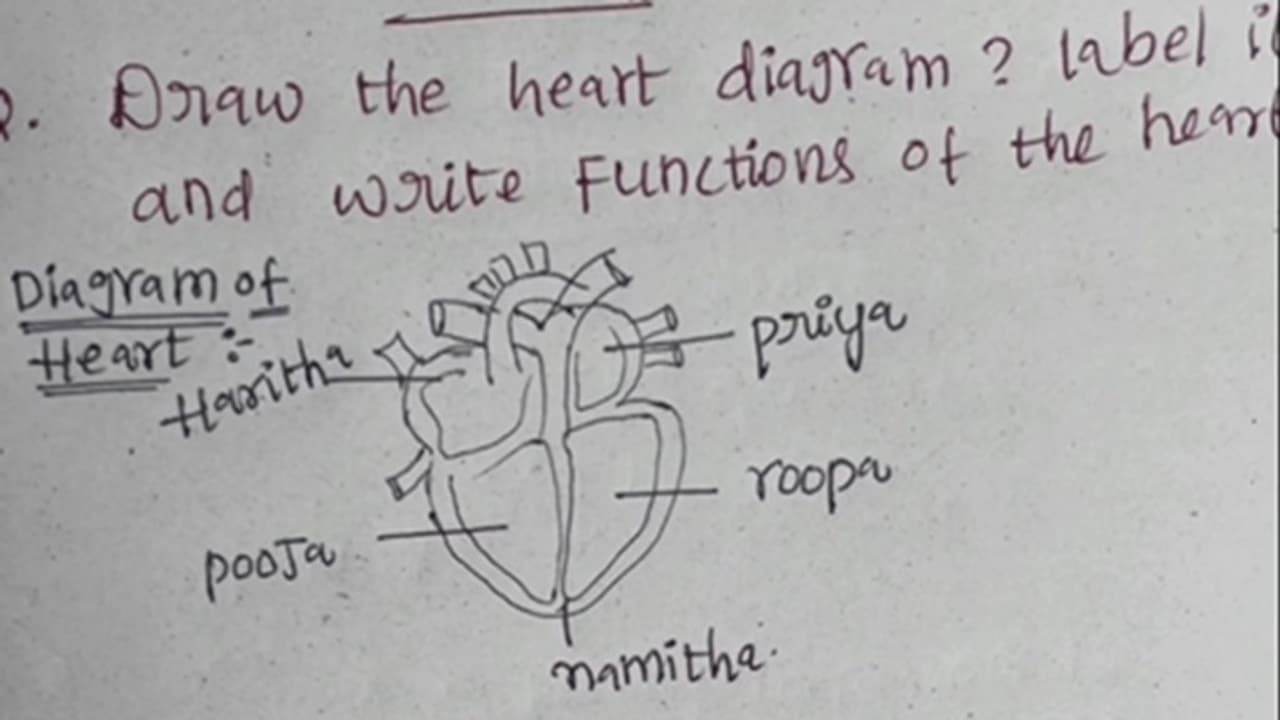 Draw the heart diagram? label
and write Functions of the heart
Diagram of
Heart :-
Haritha
priya
roopa
pooja
namitha.